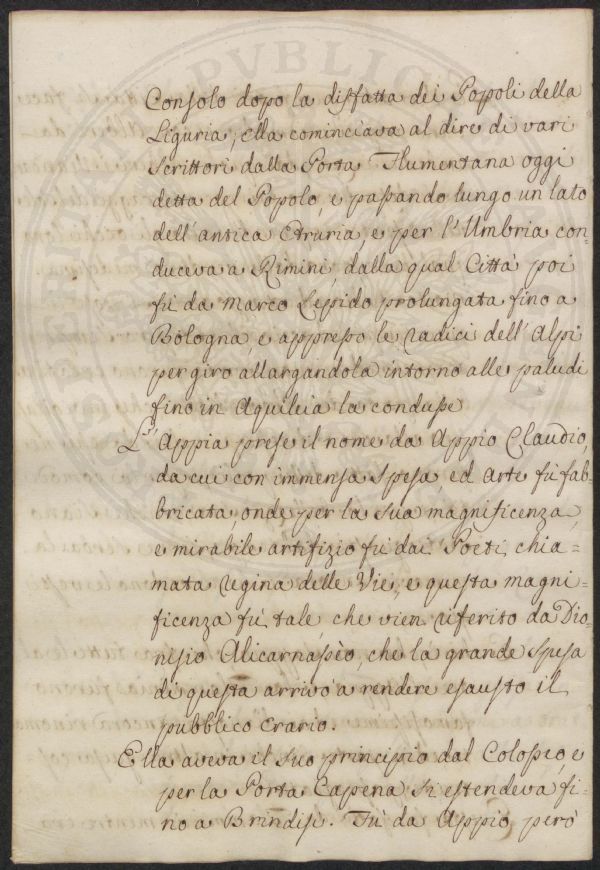 Consolo dopo la disfatta dei Popoli della
Liguria, ella cominciava al dire di vari
scrittori dalla Porta Flumentana oggi
detta del Popolo, e passando lungo un lato
dell'antica Etruria, e per l'Umbria con=
duceva a Rimini, dalla qual Città poi
fù da Marco Lepido prolungata fino a
Bologna, e appresso le radici dell'Alpi
per giro allargandola intorno alle paludi
fino in Aquileia la condusse
L'Appia prese il nome da Appio Claudio,
da cui con immensa spesa ed arte fù fab=
bricata, onde per la sua magnificenza,
e mirabile artifizio fù dai Poeti chia=
mata Regina delle Vie, e questa magni=
ficenza fù tale che vien riferito da Dio=
nisio Alicarnasseo, che la grande spesa
di questa arrivò a rendere esausto il
pubblico erario.
Ella aveva il suo principio dal Colosseo, e
per la Porta Capena si estendeva fi=
no a Brindisi. Fù da Appio però